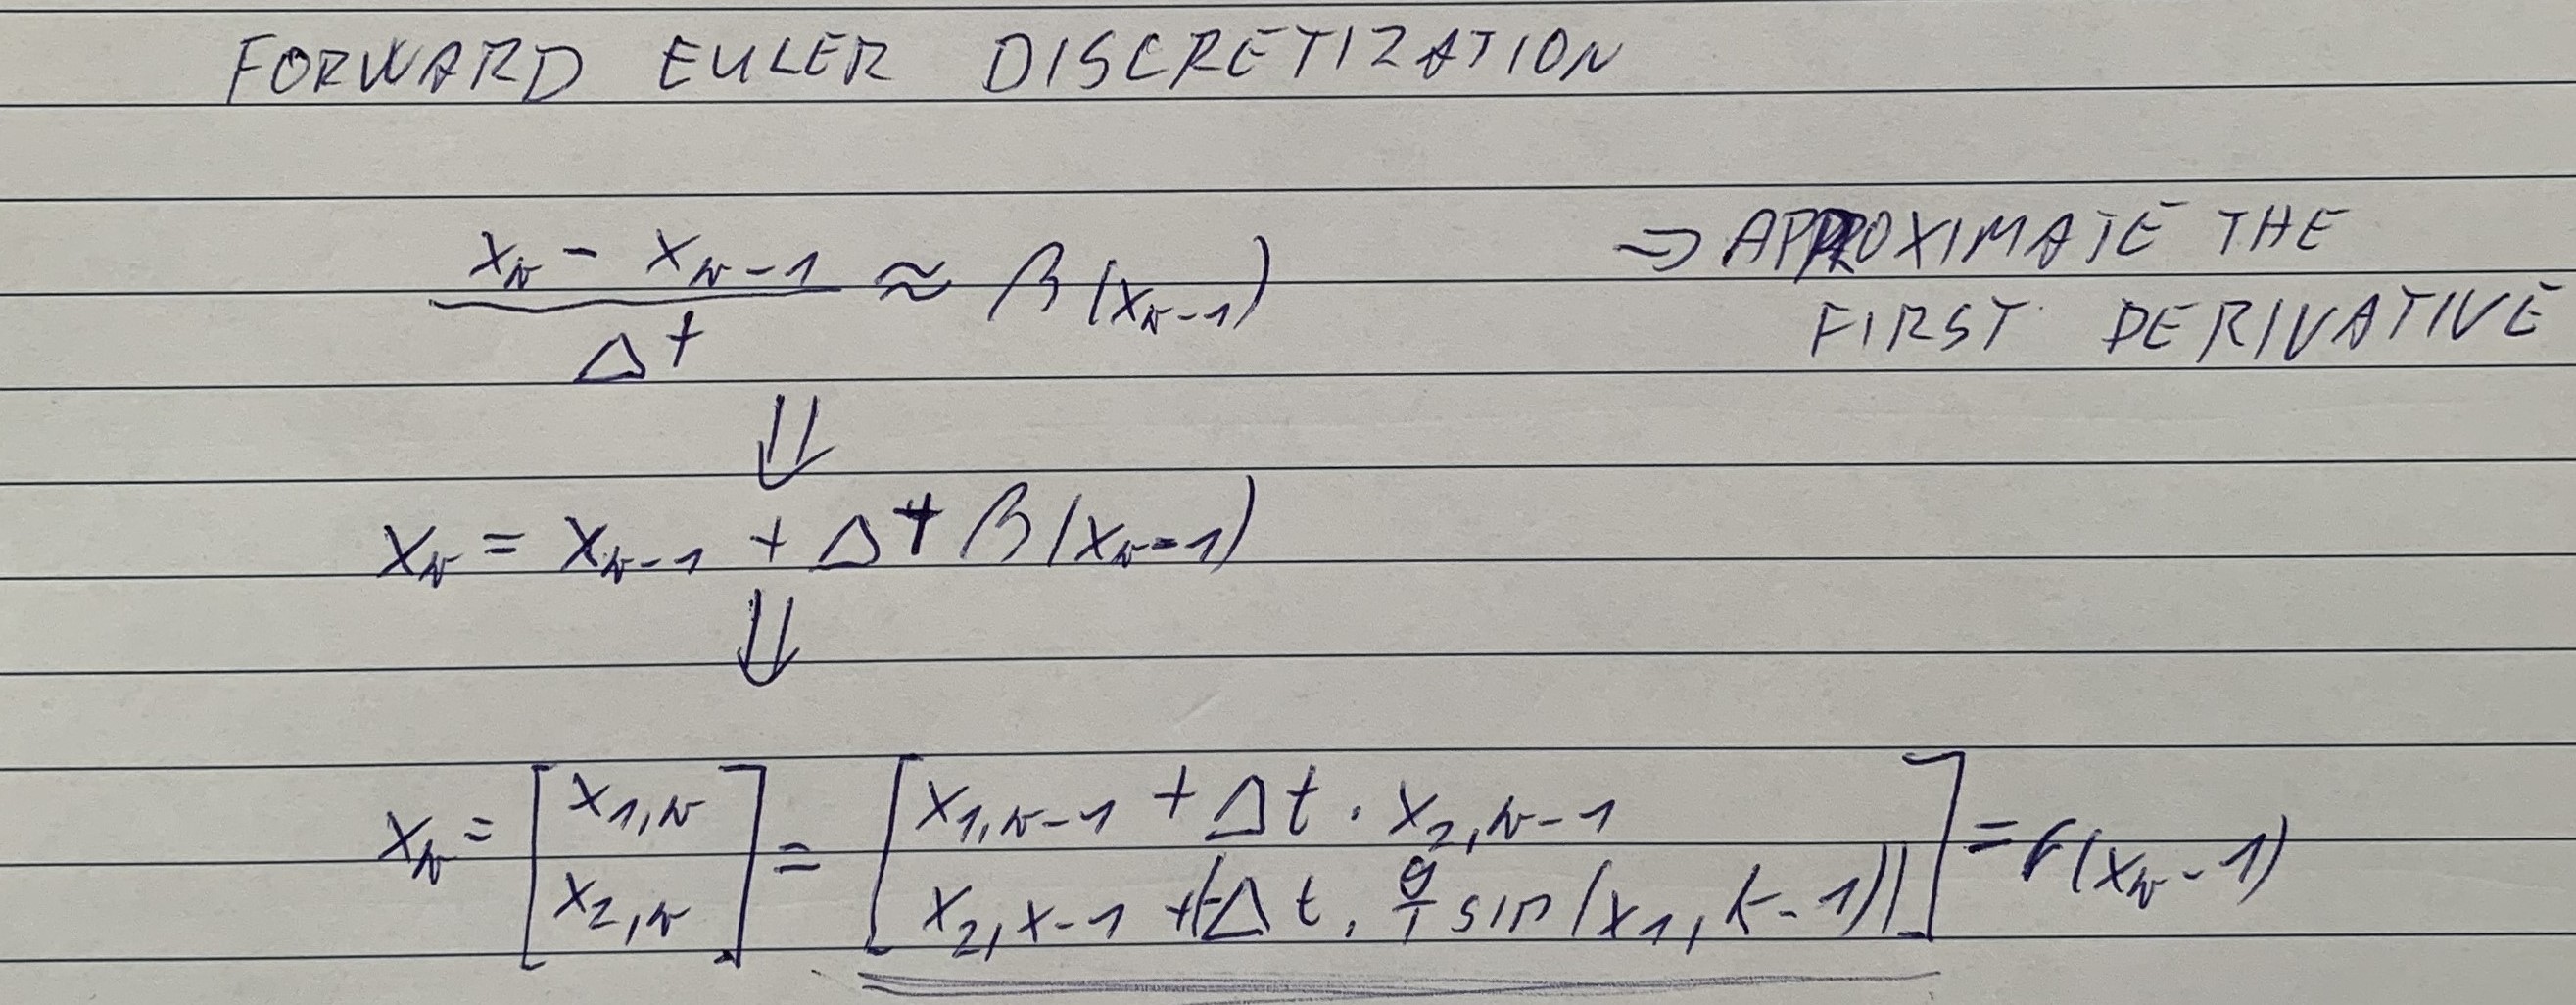 FORWARD EULER DISCRETIZATION
(x_k - x_{k-1}) / Δt ≈ β(x_{k-1}) ⇒ APPROXIMATE THE
FIRST DERIVATIVE
⇓
x_k = x_{k-1} + Δt β(x_{k-1})
⇓
x_k = [x_{1,k} ; x_{2,k}] = [x_{1,k-1} + Δt · x_{2,k-1} ; x_{2,x-1} + (-Δt · g/l sin(x_1,k-1))] = f(x_{k-1})